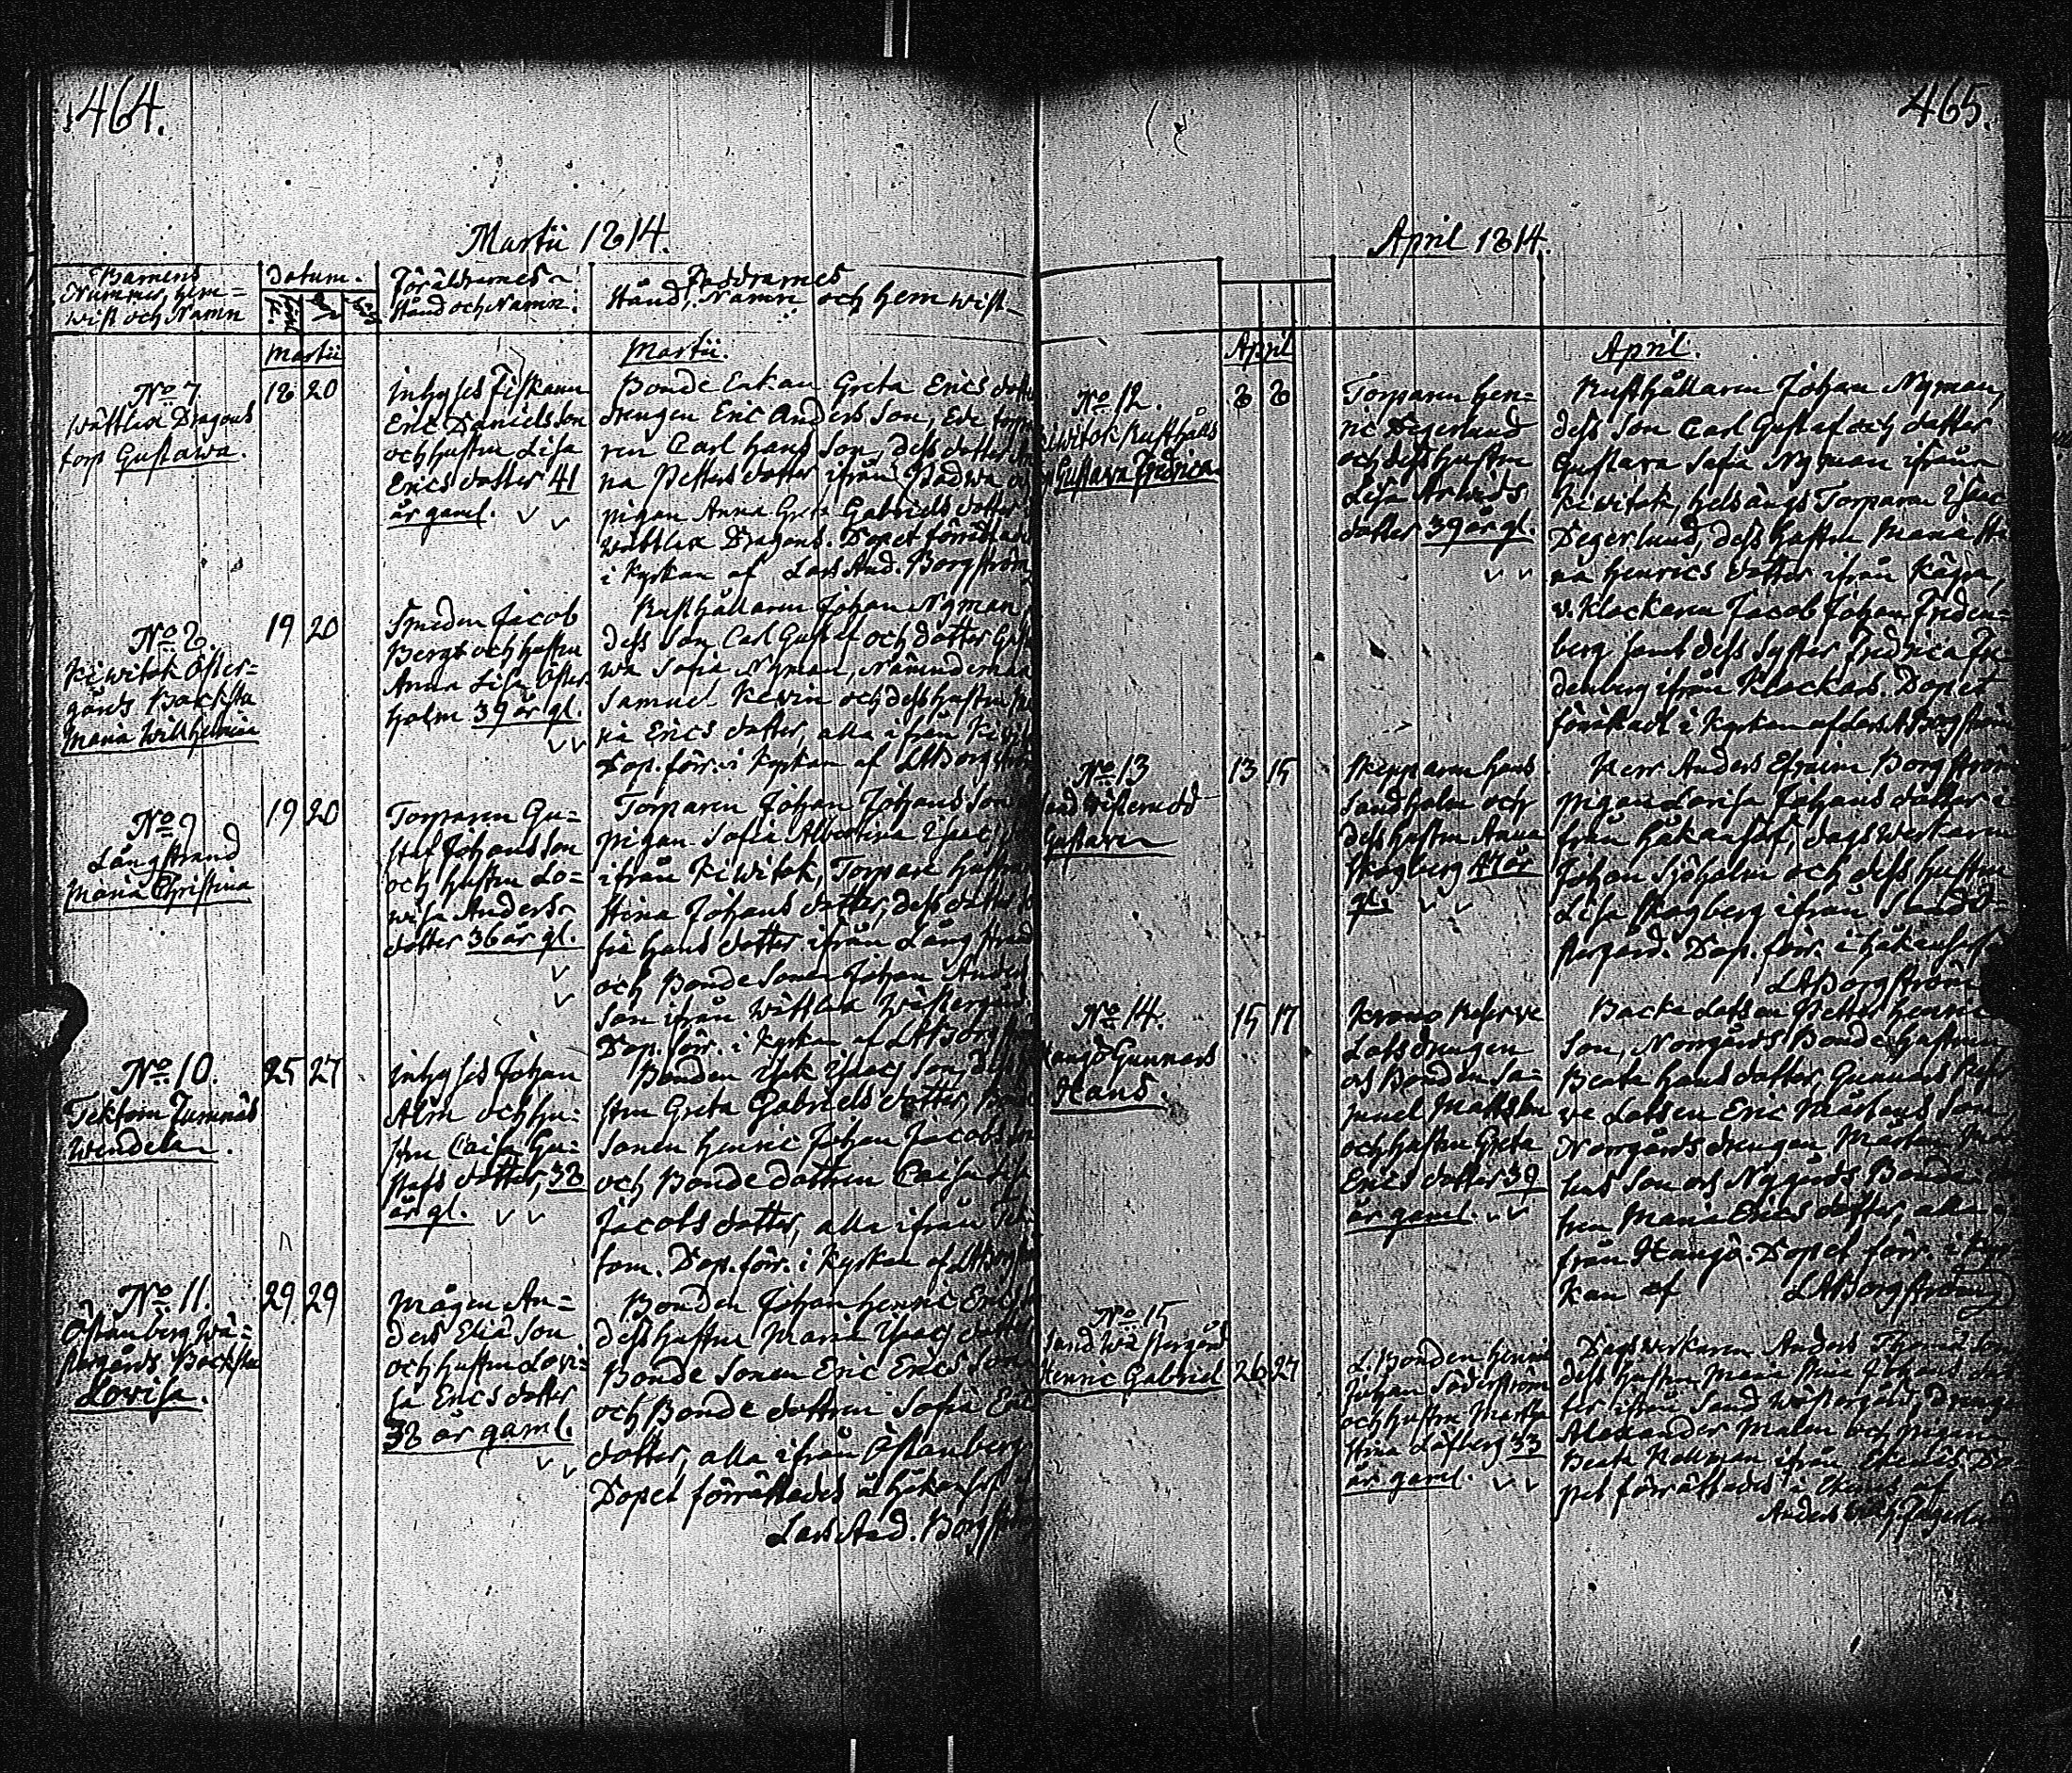 464.
Martii 1814.
Barnens
Nummer, hem=
wist och Namn
Datum.
Föräldrarnes
Stånd och Namn.
Faddrarnes
Stånd, Namn och hemwist
Martii
Martii.
No 7
Wättlax Dragons
torp Gustawa.
18 20
Inhyses Fiskaren
Eric Danielsson
och hustru Lisa
Ericsdotter 41
år gaml.
Bonde Enkan Greta Erics dotter
drengen Eric Anders Son,
ren Carl Hans Son, dess dotter
na Petters dotter ifrån Padwa
pigan Anna Greta Gabriels dotter
Wättlax Dragons. Dopet förrättades
i Kyrkan af Lars And. Borgström
No 8
Kiwitok Öster=
gårds Backstu
Maria Wilhelmina
19 20
Smeden Jacob
Berg och hustru
Anna Lisa Öster
holm 39 år gl.
Rusthållaren Johan Nyman
dess Son Carl Gustaf och dotter
wa Sofia Nyman, Nämndeman
Samuel Kewin och dess hustru
ria Erics dotter, alla ifrån
Dop. förr. i Kyrkan af LABorgström
No 9
Långstrand
Maria Christina
19 20
Torparen Gu=
staf Johansson
och hustru Lo=
wisa Anders
dotter 36 år gl.
Torparen Johan Johans Son
pigan Sofia Albertina
ifrån Kiwitok, Torpare hustru
Stina Johans dotter, dess dotter
fia Hans dotter ifrån Långstrand
och Bonde Sonen Johan Anders
Son ifrån Wättlax Wästergård
Dop. förr. i Kyrkan af LABorgström
No 10.
Tektom Jumnäs
Wendela.
25 27
Inhyses Johan
Alm och hu=
stru Caisa Gu=
stafs dotter, 38
år gl.
Bonden Isak Isacs Son, dess
stru Greta Gabriels dotter,
Sonen Henric Johan Jacobs
och Bonde dottren Caisa
Jacobs dotter, alla ifrån
tom. Dop. förr. i Kyrkan af LABorgström
No 11.
Östanberg Wä=
stergårds Backstu
Lovisa.
29 29
Mågen An=
ders Eliä Son
och hustru Lovi=
sa Erics dotter
38 år gaml.
Bonden Johan Henric
dess hustru Maria Isacs dotter
Bonde Sonen Eric Erics Son
och Bonde dottren Sofia
dotter, alla ifrån Östanberg
Dopet förrättades å Håkansarf
Lars And. Borgström
465.
April 1814.
April
April.
No 12.
Kiwitok Rusthålls
Gustava Fredrica
8 8
Torparen Hen=
ric Degerlund
och dess hustru
Lisa Arwids
dotter 39 år gl.
Rusthållaren Johan Nyman,
dess Son Carl Gustaf och dotter
Gustava Sofia Nyman ifrån
Kiwitok, Helsängs Torparen Isaac
Degerlund, dess hustru Maria Sti
na Henrics dotter ifrån
v. Klockaren Jacob Johan Friden=
berg samt dess Syster Fredrica Fri
denberg ifrån Klockars. Dopet
förrättadt i Kyrkan af Lars A Borgström
No 13
Gustava
13 15
Skepparen Hans
Sandholm och
dess hustru Anna
Skogberg 47 år
gl.
Herr Anders Efraim Borgström
pigan Lovisa Johans dotter i
från Håkansarf, dagswerkaren
Johan Sjöholm och dess hustru
Lisa Skogberg ifrån Sand
stergård. Dop. förr. i Håkansarf
LABorgström
No 14.
Hangö Gunnars
Hans.
15 17
Krono Reserve
Lotsdrengen
och Bonden Sa=
muel Mattsson
och hustru Greta
Erics dotter 39
år gaml.
Backa Lotsen Petter Henrics
Son, Norrgårds Bonde hustrun
Beata Hans dotter, Gunnars Reser
ve Lotsen Eric Mårtens Son,
Norrgårds drengen Mårten
Son och Nygårds Bonde
Maria Erics dotter, alla
från Hangö. Dopet förr. i Kyr
kan af LABorgström
No 15
Sand Wästergård
Henric Gabriel
26 27
L. Bonden Henric
Johan Söderström
och hustru Martha
Stina Löfberg 33
år gaml.
Dagswerkaren Anders Thomasson
dess hustru Maria Stina Johans dot
ter ifrån Sand Wästergård, Drengen
Alexander Malm och pigan
Beata Kallman ifrån Ekenäs. Do
pet förrättades i Ekenäs af
Anders